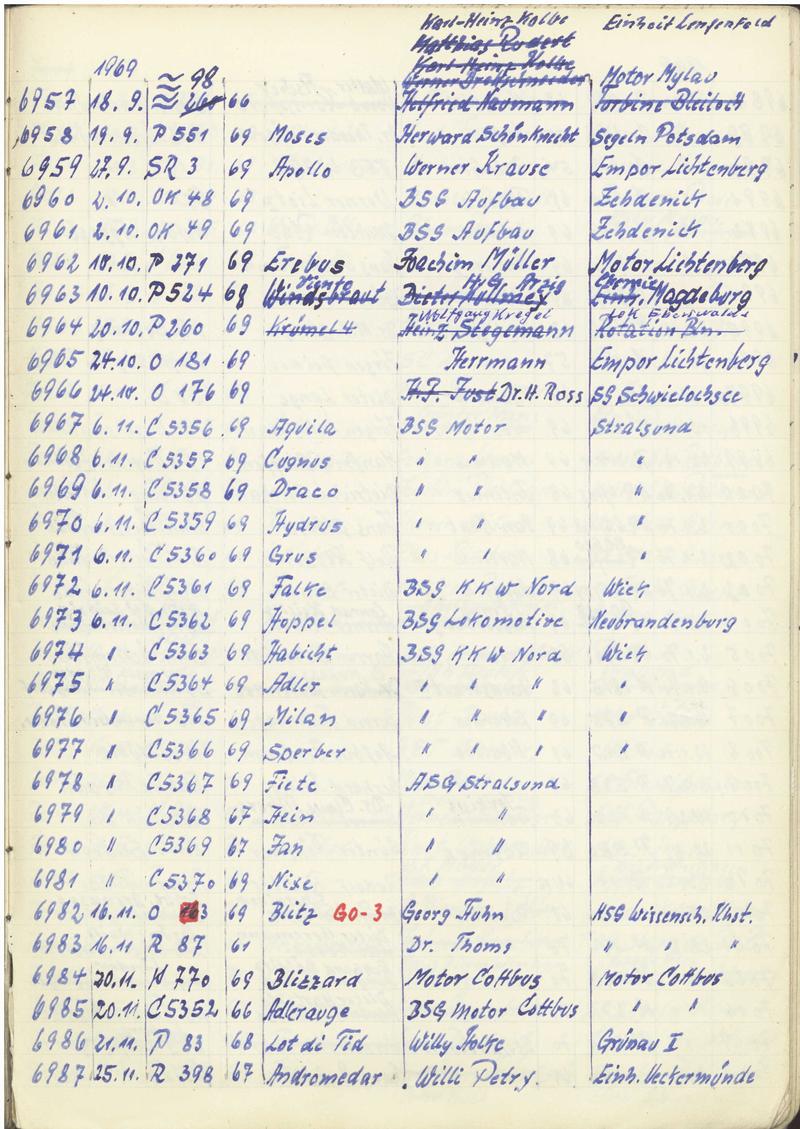 Karl-Heinz Kolbe Einheit Lengenfeld
Matthias Rodert
1969 98 Karl-Heinz Kolbe
Motor Mylau
6957 18. 9. 66 Helfried Naumann Turbine Bleiloch
6958 19. 9. P 551 69 Moses Herward Schönknecht Segeln Potsdam
6959 27. 9. SR 3 69 Apollo Werner Krause Empor Lichtenberg
6960 2. 10. OK 48 69 BSG Aufbau Zehdenick
6961 2. 10. OK 49 69 BSG Aufbau Zehdenick
6962 10. 10. P 271 69 Erebus Joachim Müller Motor Lichtenberg
6963 10. 10. P 524 68 Windsbraut Dieter Einh. Magdeburg
Wolfgang Kregel Lok Eberswalde
6964 20. 10. P 260 69 Krümel 4 Heinz Stegemann Rotation Bln.
6965 24. 10. O 181 69 Herrmann Empor Lichtenberg
6966 24. 10. O 176 69 H.J. Just Dr. H. Ross SG Schwielochsee
6967 6. 11. C 5356 69 Aquila BSG Motor Stralsund
6968 6. 11. C 5357 69 Cygnus " " "
6969 6. 11. C 5358 69 Draco " " "
6970 6. 11. C 5359 69 Hydrus " " "
6971 6. 11. C 5360 69 Grus " " "
6972 6. 11. C 5361 69 Falke BSG KKW Nord Wiek
6973 6. 11. C 5362 69 Hoppel BSG Lokomotive Neubrandenburg
6974 " C 5363 69 Habicht BSG KKW Nord Wiek
6975 " C 5364 69 Adler " " " "
6976 " C 5365 69 Milan " " " "
6977 " C 5366 69 Sperber " " " "
6978 " C 5367 69 Fiete ASG Stralsund
6979 " C 5368 67 Hein " "
6980 " C 5369 67 Jan " "
6981 " C 5370 69 Nixe " "
6982 16. 11. O 69 Blitz GO-3 Georg Huhn HSG Wissensch. Rhst.
6983 16. 11 R 87 61 Dr. Thoms " " "
6984 20. 11. N 770 69 Blizzard Motor Cottbus Motor Cottbus
6985 20. 11. C 5352 66 Adlerauge BSG Motor Cottbus " "
6986 21. 11. P 83 68 Lot di Tid Willy Holke Grünau I
6987 25. 11. R 398 67 Andromedar Willi Petry Einh. Ueckermünde